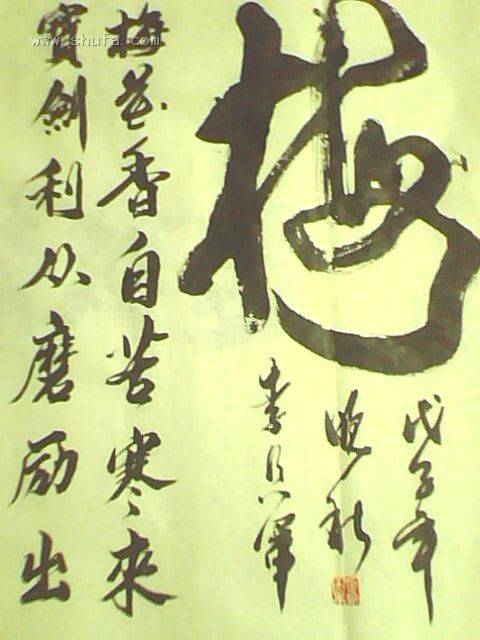 梅
戊子年
晚秋
李
梅花香自苦寒來
寶劍利从磨励出
www.shufa.com